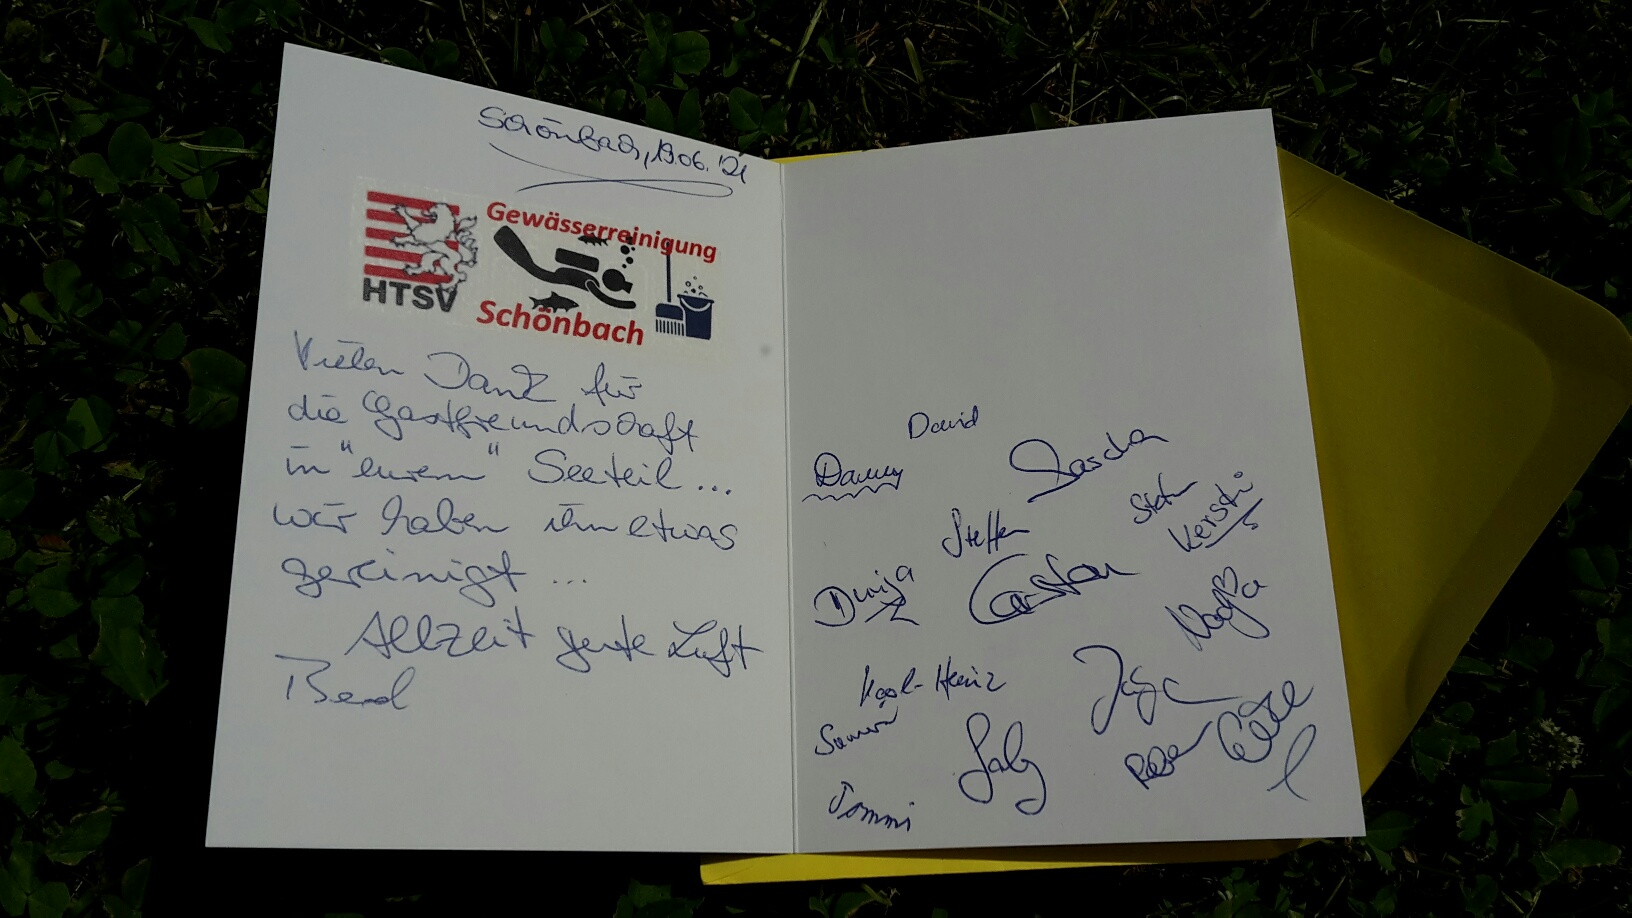 Schönbach, 19.06.'21
HTSV
Gewässerreinigung
Schönbach
Vielen Dank für
die Gastfreundschaft
in "eurem" Seeteil...
wir haben ihn etwas
gereinigt...
Allzeit gute Luft
Bernd
David
Danny
Sascha
Steffen
Kerstin
Carsten
Karl-Heinz
Gaby
Tommi